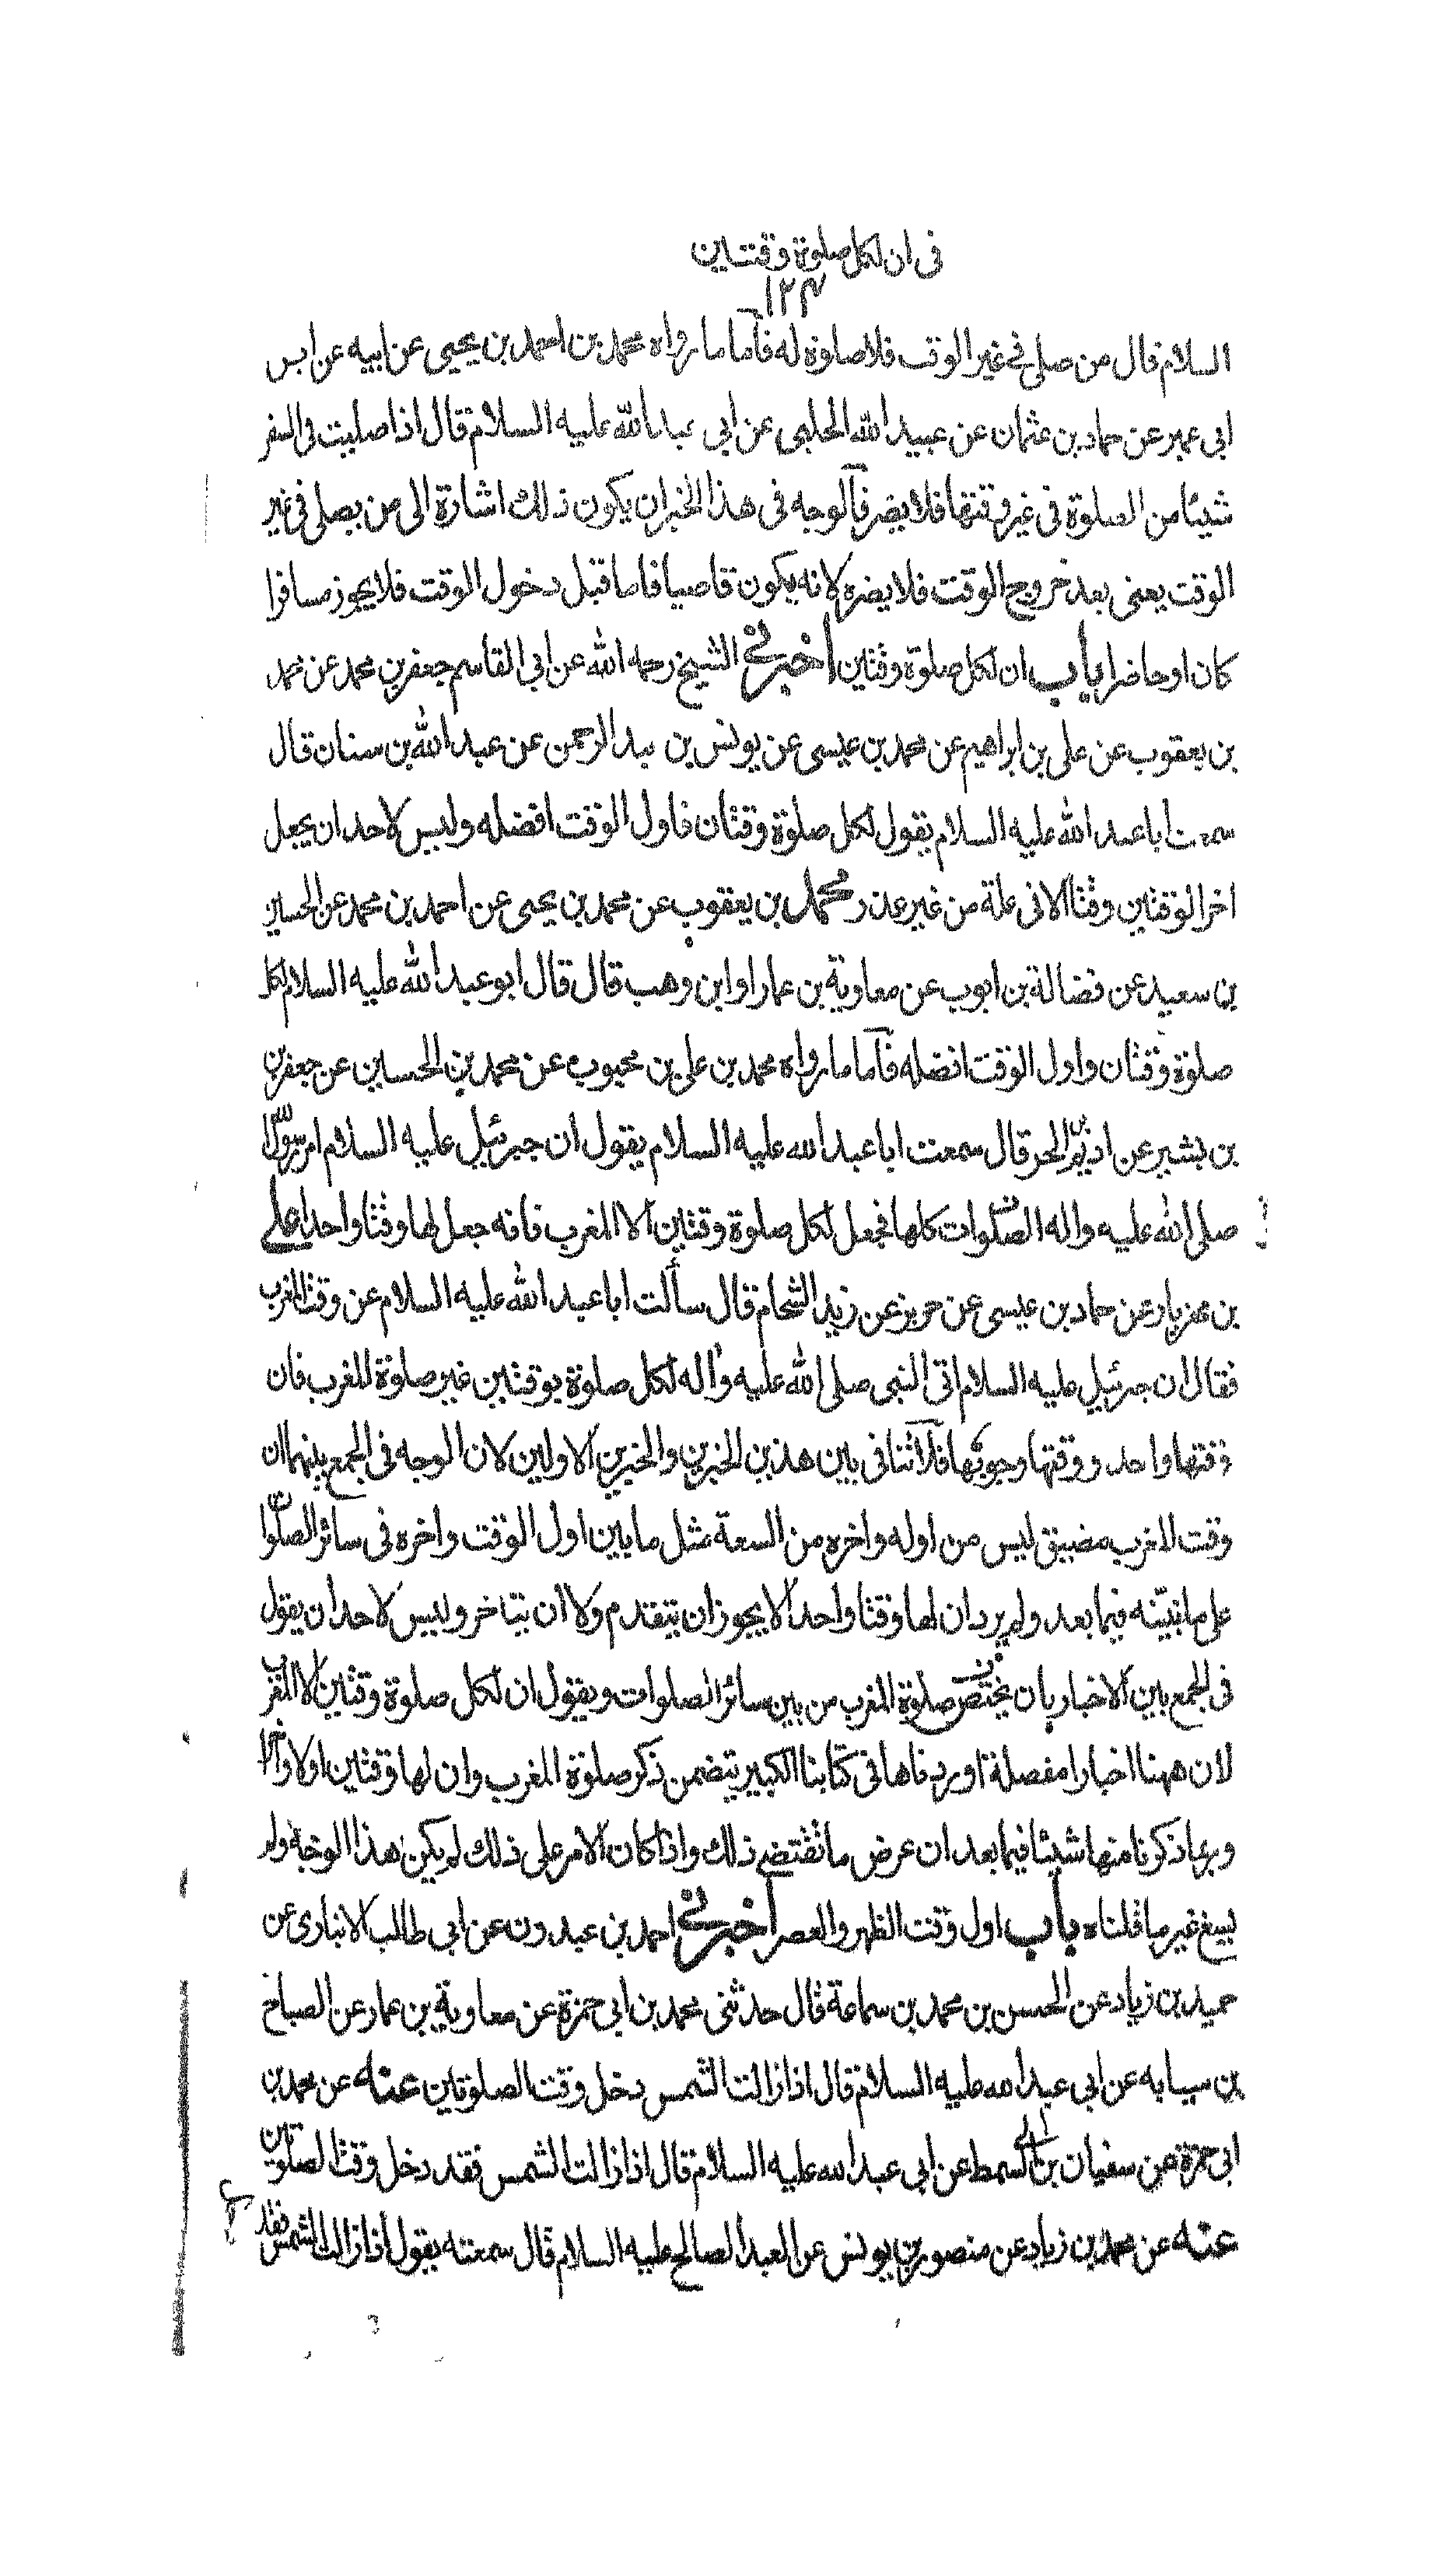 فى ان لكل صلوة وقتين
١٢٣
السلام قال من صلى فى غير الوقت فلا صلوة له فاما ما رواه محمد بن احمد بن يحيى عن ابيه عن ابن
ابى عمير عن حماد بن عثمان عن عبيد الله الحلبى عن ابى عبد الله عليه السلام قال اذا صليت فى السفر
شيئا من الصلوة فى غير وقتها فلا يضر فالوجه فى هذا الخبر ان يكون ذلك اشارة الى من يصلى فى غير
الوقت يعنى بعد خروج الوقت فلا يضره لانه يكون قاضيا فاما قبل دخول الوقت فلا يجوز مسافرا
كان او حاضرا باب ان لكل صلوة وقتين اخبرنى الشيخ رحمه الله عن ابى القاسم جعفر بن محمد عن محمد
بن يعقوب عن على بن ابراهيم عن محمد بن عيسى عن يونس بن عبد الرحمن عن عبد الله بن سنان قال
سمعت ابا عبد الله عليه السلام يقول لكل صلوة وقتان فاول الوقت افضله وليس لاحد ان يجعل
اخر الوقتين وقتا الا فى علة من غير عذر محمد بن يعقوب عن محمد بن يحيى عن احمد بن محمد عن الحسين
بن سعيد عن فضالة بن ايوب عن معاوية بن عمار او ابن وهب قال قال ابو عبد الله عليه السلام لكل
صلوة وقتان واول الوقت افضله فاما ما رواه محمد بن على بن محبوب عن محمد بن الحسين عن جعفر بن
بن بشير عن اديم بن الحر قال سمعت ابا عبد الله عليه السلام يقول ان جبرئيل عليه السلام امر رسول الله
صلى الله عليه واله الصلوات كلها فجعل لكل صلوة وقتين الا المغرب فانه جعل لها وقتا واحدا على
بن مهزيار عن حماد بن عيسى عن حريز عن زيد الشحام قال سألت ابا عبد الله عليه السلام عن وقت المغرب
فقال ان جبرئيل عليه السلام اتى النبى صلى الله عليه واله لكل صلوة بوقتين غير صلوة المغرب فان
وقتها واحد ووقتها وجوبها فلا تنافى بين هذين الخبرين والخبرين الاولين لان الوجه فى الجمع بينهما ان
وقت المغرب مضيق ليس من اوله واخره من السعة مثل ما بين اول الوقت واخره فى سائر الصلوات
على ما نبينه فيما بعد ولم يرد ان لها وقتا واحدا لا يجوز ان يتقدم ولا ان يتاخر وليس لاحد ان يقول
فى الجمع بين الاخبار بان يختص صلوة المغرب من بين سائر الصلوات ويقول ان لكل صلوة وقتين الا المغرب
لان ههنا اخبارا مفصلة اوردناها فى كتابنا الكبير يتضمن ذكر صلوة المغرب وان لها وقتين اولا واخرا
وربما ذكرنا منها شيئا فيما بعد ان عرض ما تقتضى ذلك واذا كان الامر على ذلك لم يكن هذا الوجه ولم
يسغ غير ما قلناه باب اول وقت الظهر والعصر اخبرنى احمد بن عبدون عن ابى طالب الانبارى عن
حميد بن زياد عن الحسن بن محمد بن سماعة قال حدثنى محمد بن ابى حمزة عن معاوية بن عمار عن الصباح
بن سيابه عن ابى عبد الله عليه السلام قال اذا زالت الشمس دخل وقت الصلوتين عنه عن محمد بن
ابى حمزة عن سفيان بن السمط عن ابى عبد الله عليه السلام قال اذا زالت الشمس فقد دخل وقت الصلوتين
عنه عن محمد بن زياد عن منصور بن يونس عن العبد الصالح عليه السلام قال سمعته يقول اذا زالت الشمس فقد